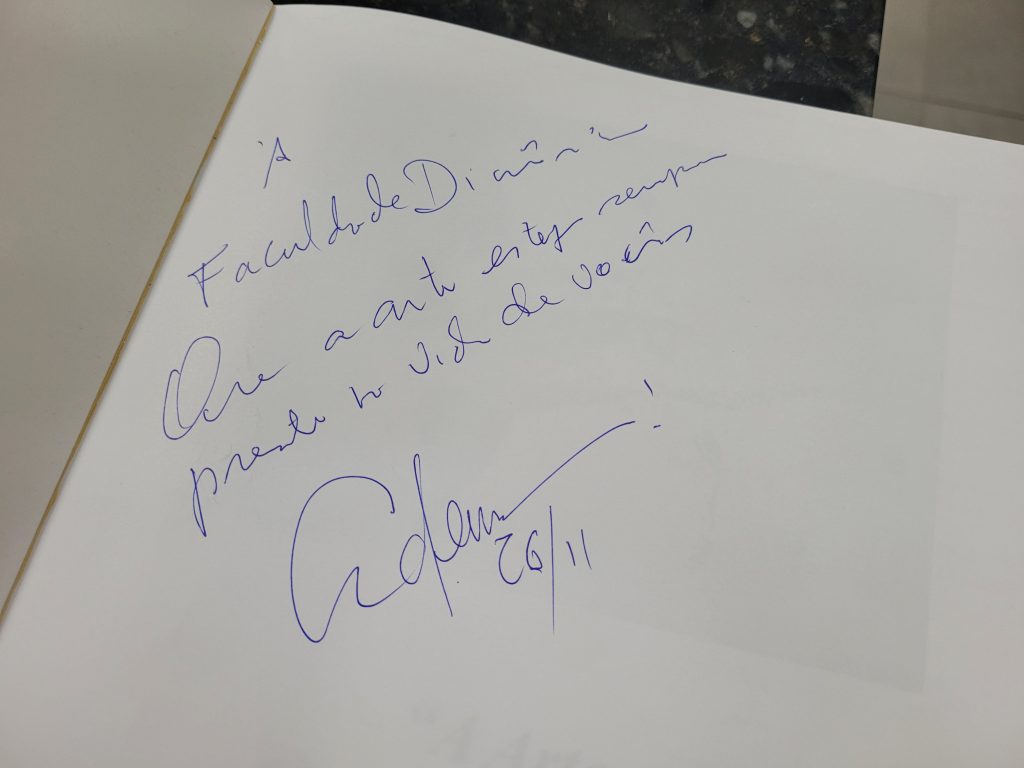 À
Faculdade Dinâmica
Que a arte esteja sempre
presente na vida de vocês
!
26/11